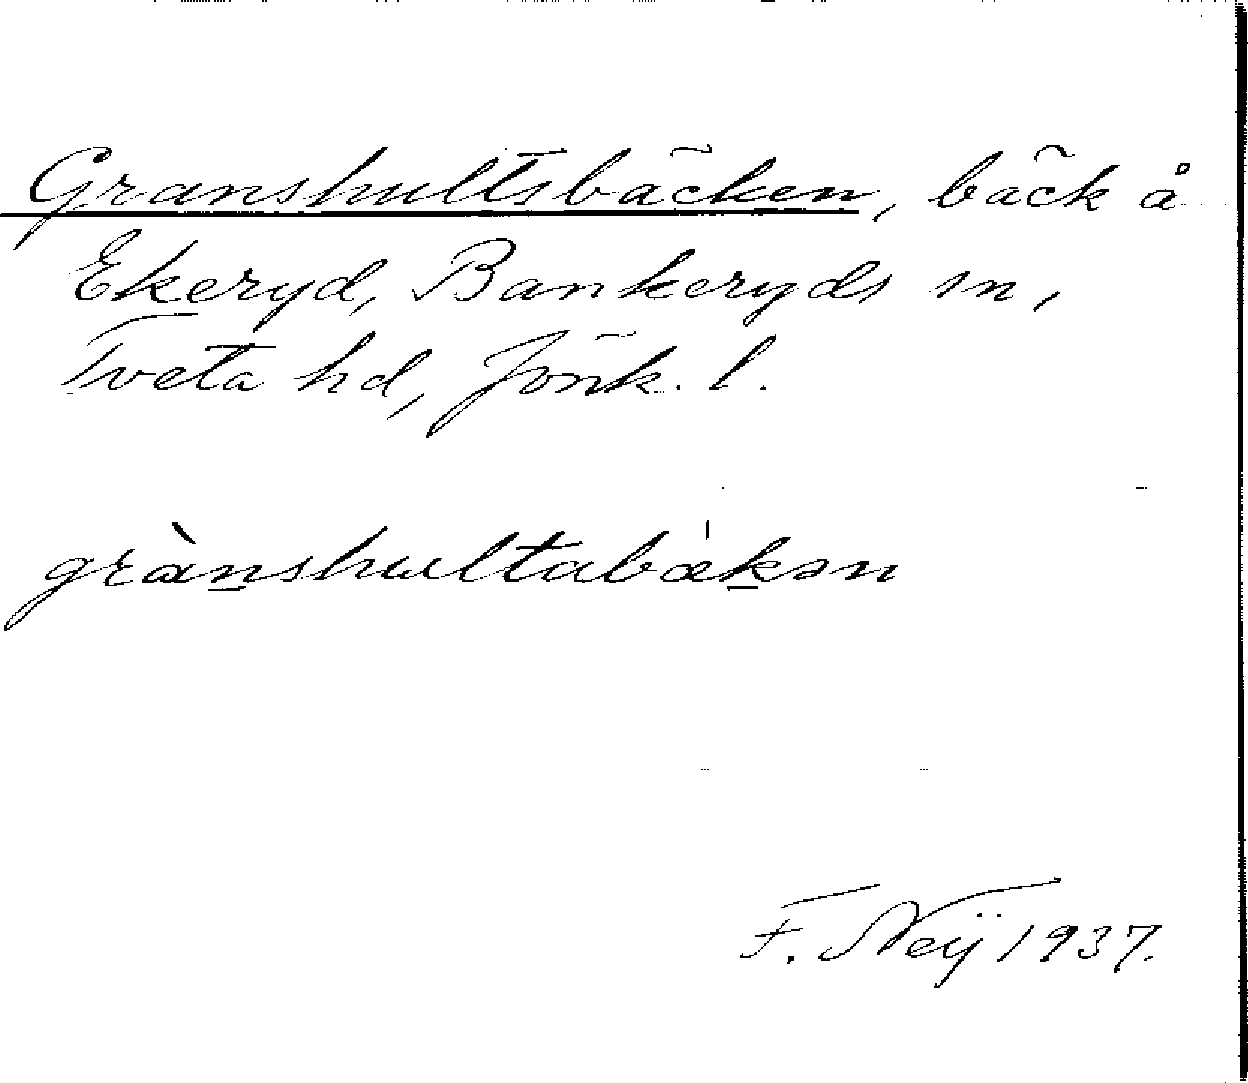 Granshultsbäcken, bäck å
Ekeryd, Bankeryds sn,
Tveta hd, Jönk. l.
grànshultabækən
F. Neÿ 1937.